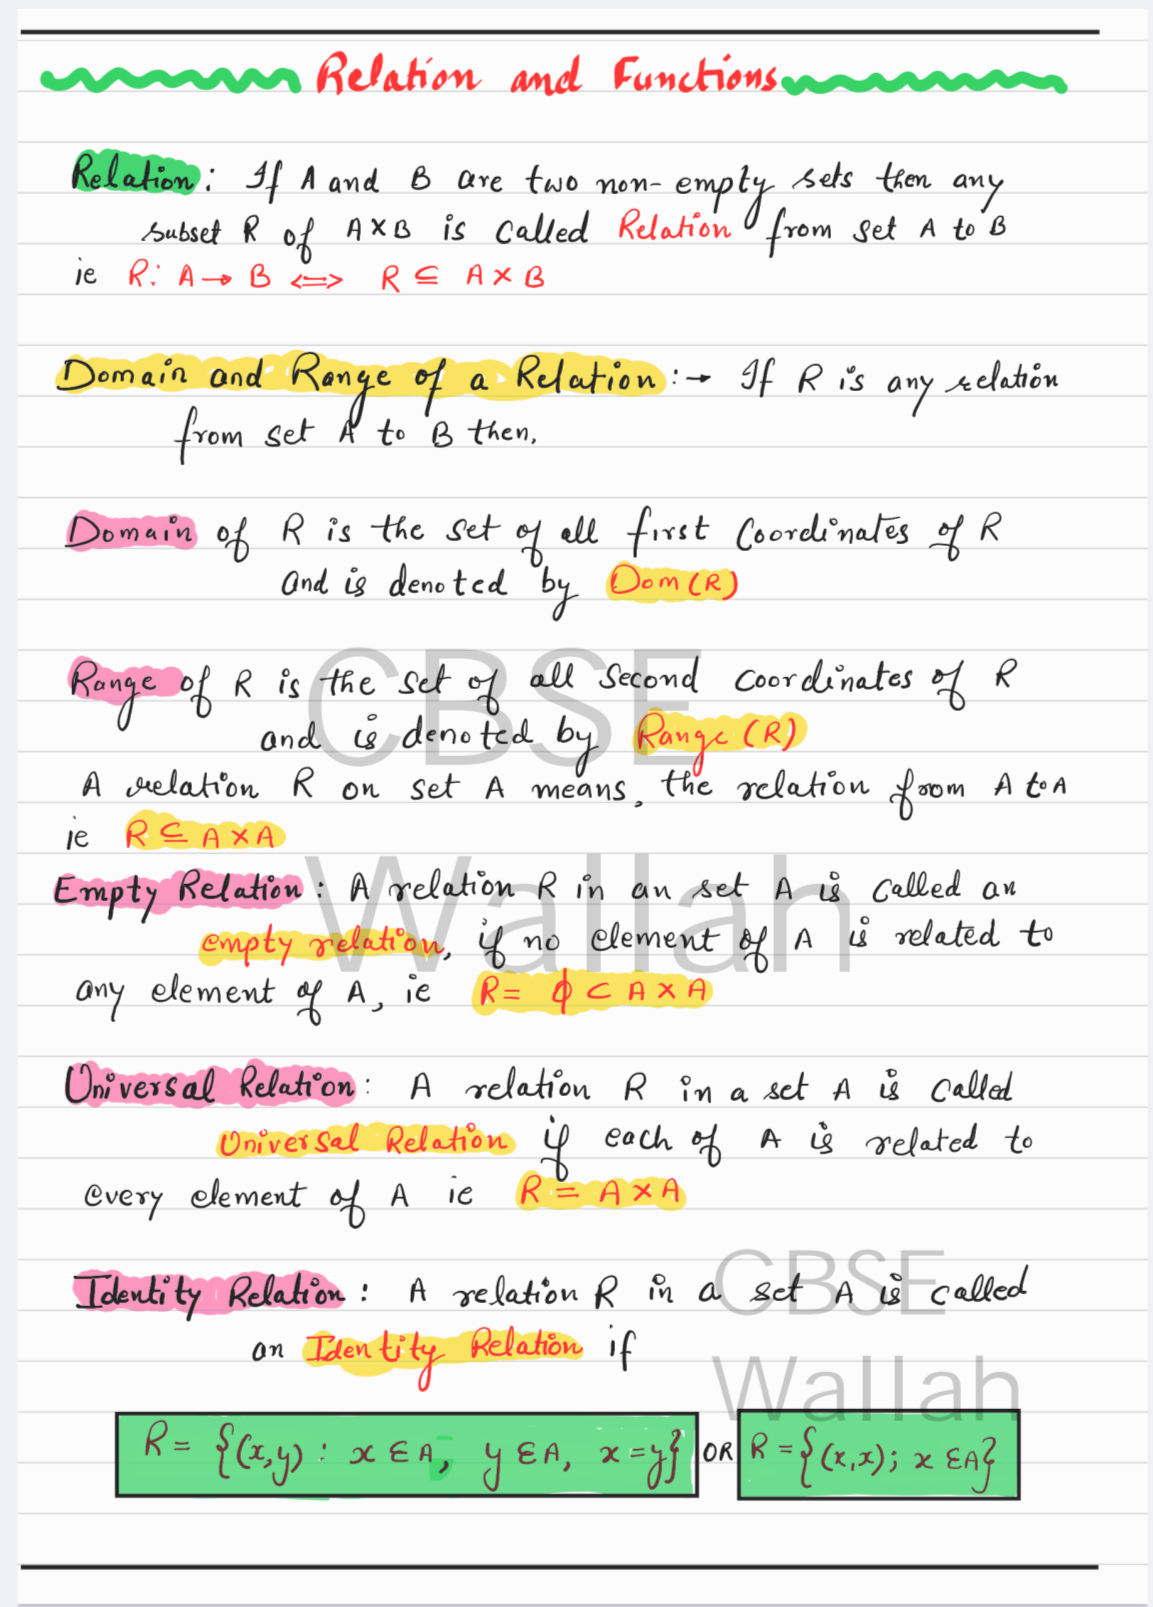 Relation and Functions
Relation: If A and B are two non-empty sets then any
subset R of A×B is called Relation from set A to B
ie R: A→B <=> R ⊆ A×B
Domain and Range of a Relation:→ If R is any relation
from set A to B then,
Domain of R is the set of all first Coordinates of R
and is denoted by Dom(R)
Range of R is the set of all second coordinates of R
and is denoted by Range (R)
A relation R on set A means, the relation from A to A
ie R ⊆ A×A
Empty Relation: A relation R in an set A is called an
empty relation, if no element of A is related to
any element of A, ie R= ϕ ⊂ A×A
Universal Relation: A relation R in a set A is called
Universal Relation if each of A is related to
every element of A ie R = A×A
Identity Relation: A relation R in a set A is called
an Identity Relation if
R= {(x,y) : x ∈ A, y ∈ A, x=y} OR R = {(x,x); x ∈ A}
CBSE
Wallah
CBSE
Wallah